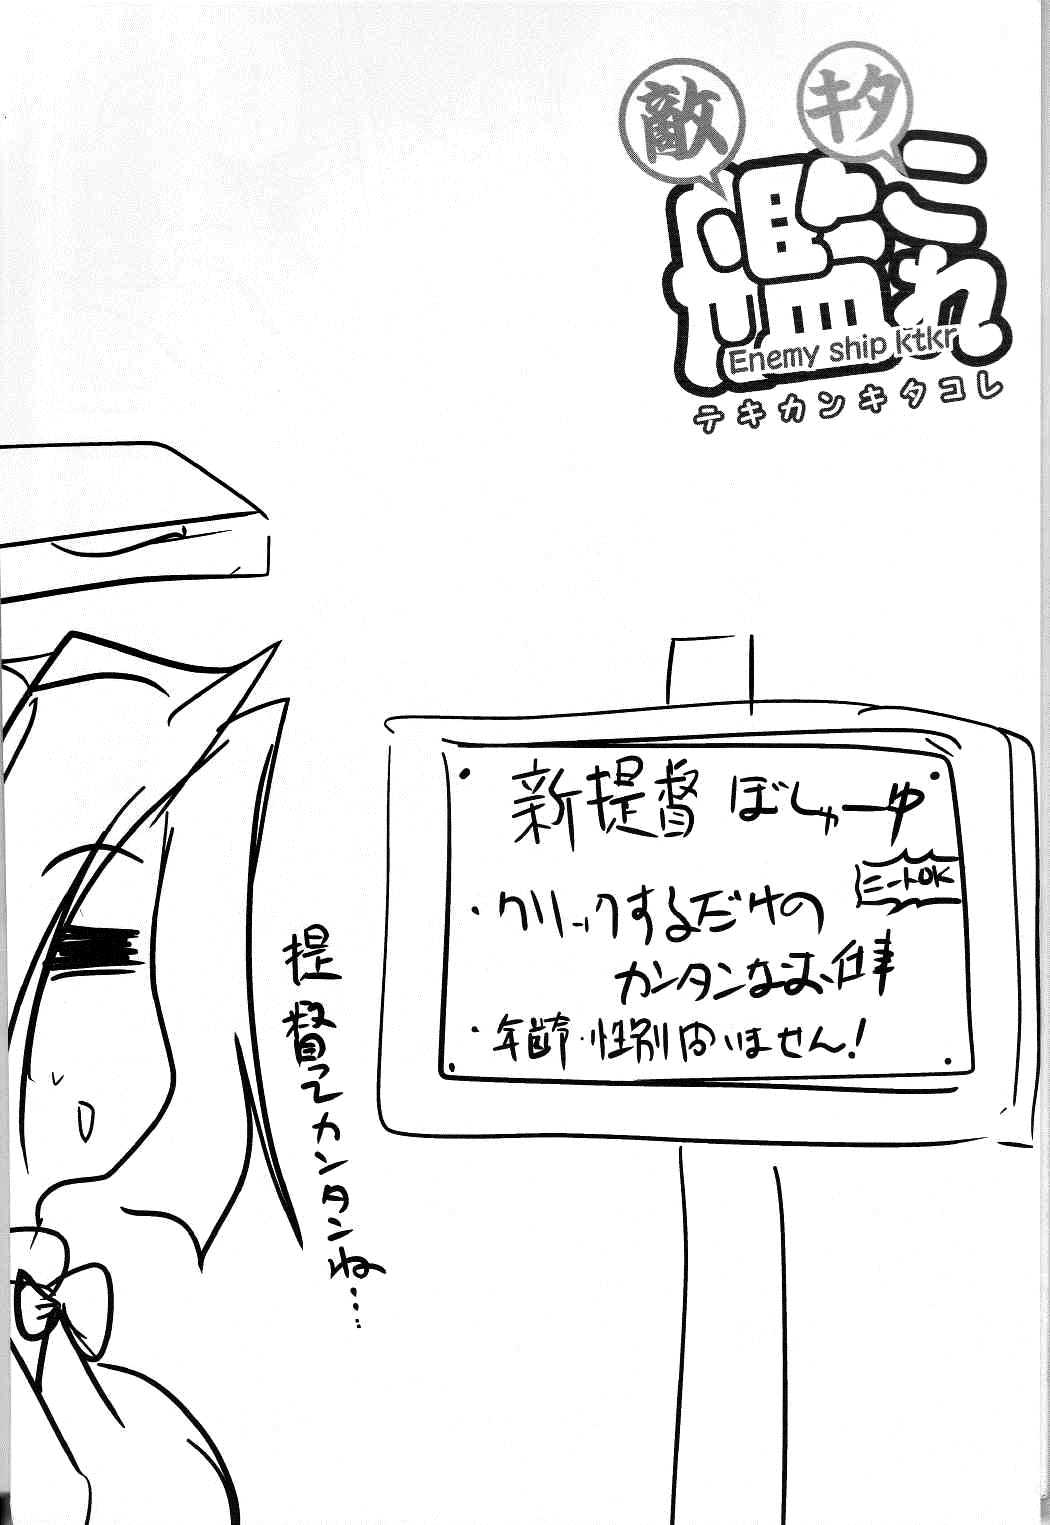 敵艦キタこれ
Enemy ship ktkr
テキカンキタコレ
新提督ぼしゅーゆ
ニートOK
・クリックするだけの
カンタンなお仕事
・年齢・性別问いません!
提督てカンタンね…